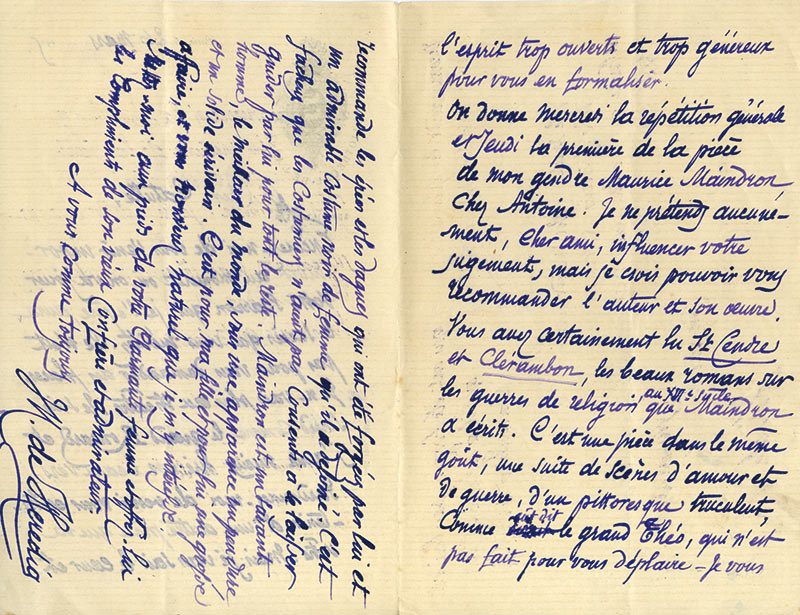 l'esprit trop ouverts et trop généreux
pour vous en formaliser.
On donne Mercredi la répétition générale
et Jeudi la première de la pièce
de mon gendre Maurice Maindron,
chez Antoine. Je ne prétends aucune-
ment, cher ami, influencer votre
jugement, mais je crois pouvoir vous
recommander l'auteur et son œuvre.
Vous avez certainement lu St Cendre
et Clérambon, les beaux romans sur
les guerres de religion au XVIe siècle que Maindron
a écrits. C'est une pièce dans le même
goût, une suite de scènes d'amour et
de guerre, d'un pittoresque truculent,
comme eût dit le grand Théo, qui n'est
pas fait pour vous déplaire – Je vous
recommande les épées et les dagues qui ont été forgées par lui et
un admirable costume noir de femme qu'il a dessiné. C'est
fâcheux que les costumiers n'aient pas consenti à se laisser
guider par lui pour tout le reste. Maindron est un savant
homme, le meilleur du monde, sous une apparence un peu dure
et un solide écrivain. C'est pour ma fille et pour lui une grosse
affaire, et vous trouverez naturel que je m'y intéresse.
Mettez-moi aux pieds de votre charmante femme et offrez-lui
les compliments de son vieux confrère et admirateur.
A vous comme toujours
J. M. de Heredia